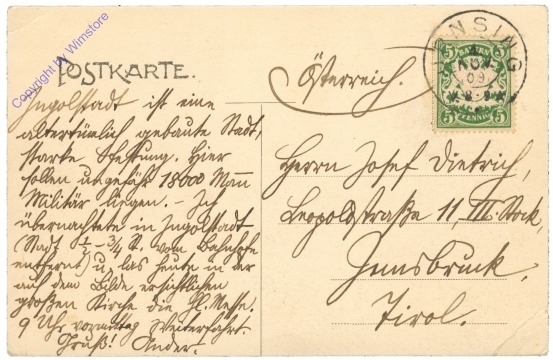 Copyright by Wimstore
POSTKARTE.
Ingolstadt ist eine
altertümlich gebaute Stadt,
starke Festung. Hier
sollen ungefähr 18000 Mann
Militär liegen. – Ich
übernachtete in Ingolstadt
(Stadt ½ – ¾ St. vom Bahnhofe
entfernt) u. las heute in der
auf dem Bilde ersichtlichen
großen Kirche die hl. Messe.
9 Uhr vormittag Weiterfahrt.
Gruß! Ander.
Österreich.
BAYERN
5 5
PFENNIG
5 5
ENSING
NOV
09
Herrn Josef Dietrich,
Leopoldstraße 11, III. Stock,
Innsbruck,
Tirol.